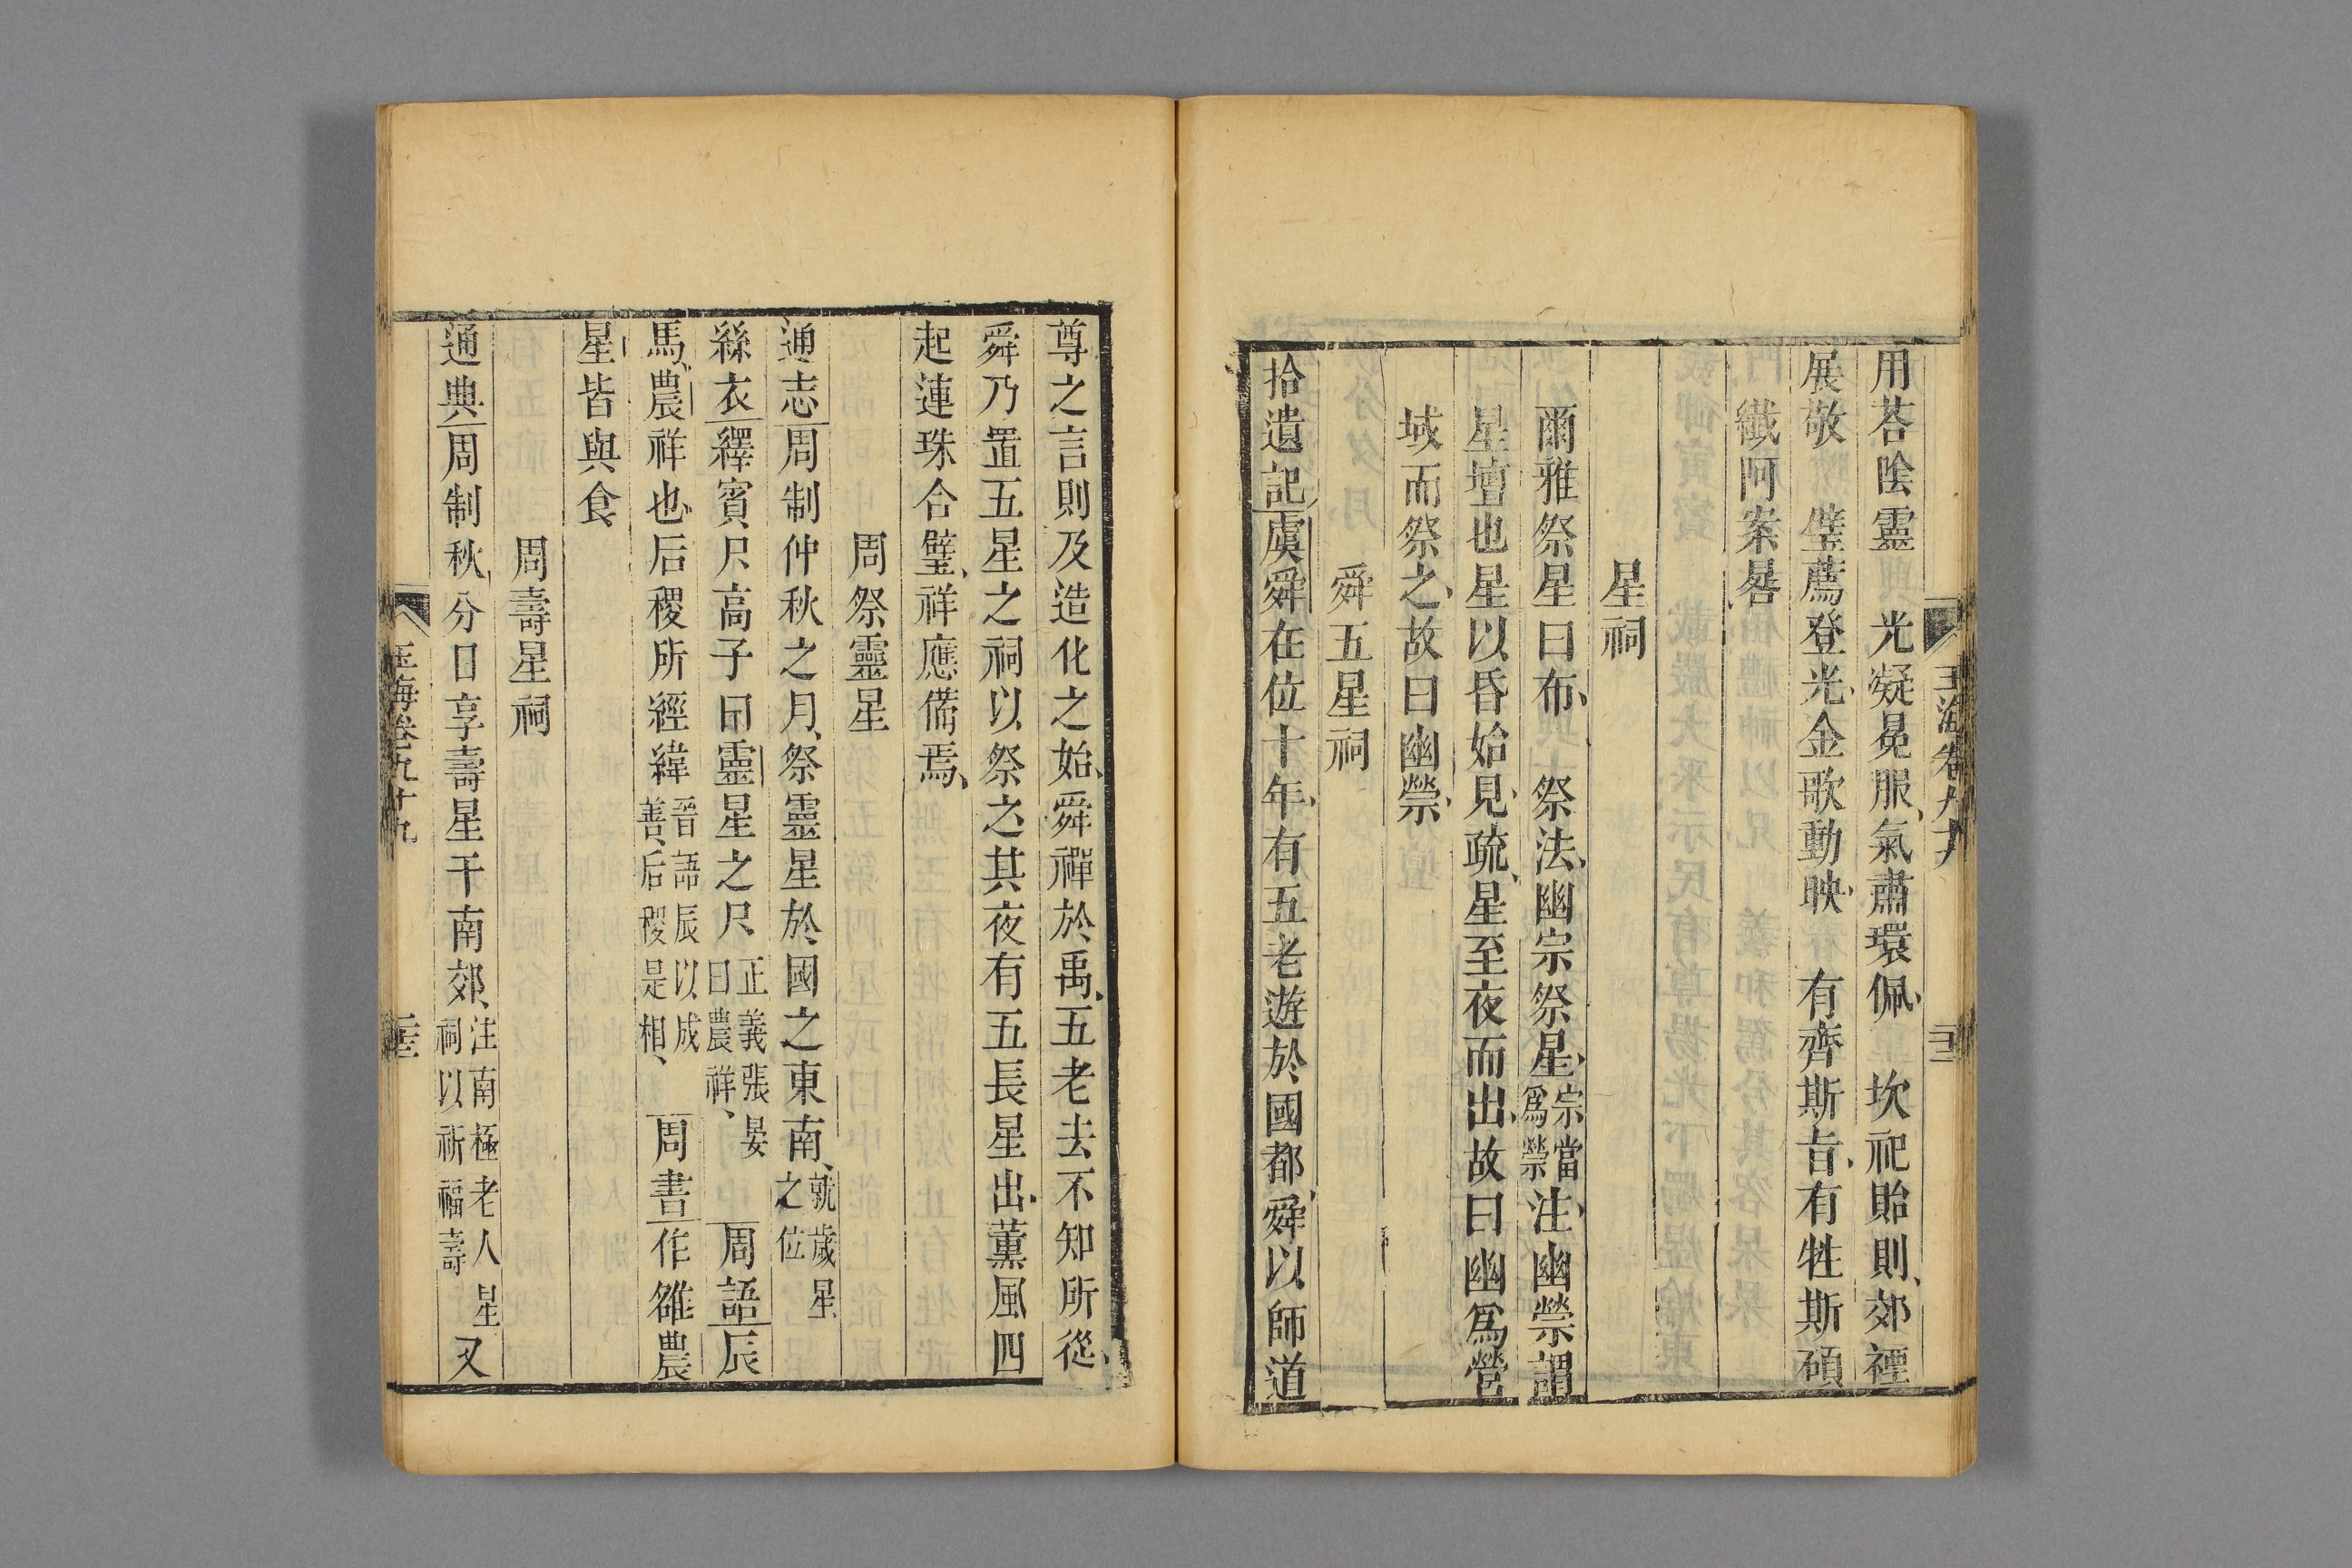 用荅陰靈　光凝冕服氣肅環佩　坎祀貽則郊禋
展敬　璧薦登光金歌動映　有齊斯旨有牲斯碩
纖阿案晷
星祠
爾雅祭星曰布　祭法幽宗祭星宗當爲禜注幽禜謂
星壇也星以昏始見疏星至夜而出故曰幽爲營
域而祭之故曰幽禜
舜五星祠
拾遺記虞舜在位十年有五老遊於國都舜以師道
尊之言則及造化之始舜禪於禹五老去不知所從
舜乃置五星之祠以祭之其夜有五長星出薰風四
起連珠合璧祥應備焉
周祭靈星
通志周制仲秋之月祭靈星於國之東南就歲星之位
絲衣繹賓尸高子曰靈星之尸正義張晏曰農祥　周語辰
馬農祥也后稷所經緯晉語辰以成善后稷是相　周書作雒農
星皆與食
周壽星祠
通典周制秋分日享壽星于南郊注南極老人星祠以祈福壽又
玉海卷九十九